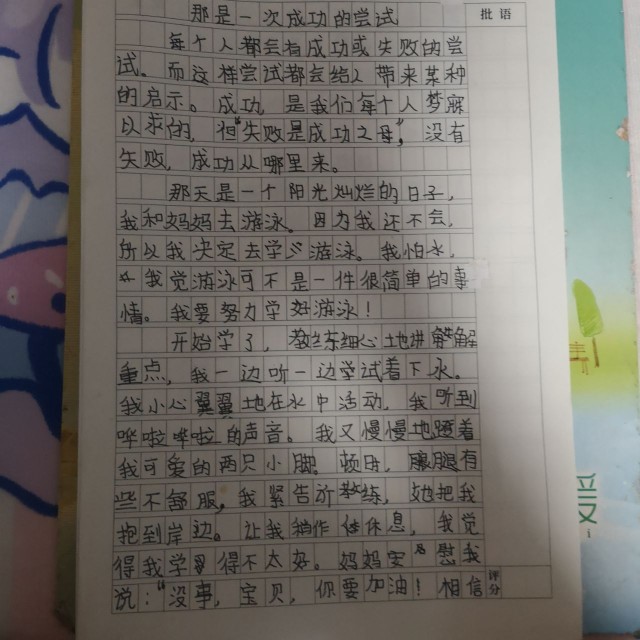 那是一次成功的尝试
批语
每个人都会有成功或失败的尝
试。而这样尝试都会给人带来某种
的启示。成功,是我们每个人梦寐
以求的,但"失败是成功之母",没有
失败,成功从哪里来。
那天是一个阳光灿烂的日子,
我和妈妈去游泳。因为我还不会,
所以我决定去学习游泳。我怕水,
我觉游泳可不是一件很简单的事
情。我要努力学好游泳!
开始学了,教练细心地讲解
重点,我一边听一边尝试着下水。
我小心翼翼地在水中活动,我听到
哗啦哗啦的声音。我又慢慢地蹬着
我可爱的两只小脚,顿时,腿有
些不舒服,我紧告诉教练,她把我
抱到岸边。让我稍作休息,我觉
得我学得不太好。妈妈安慰我
说:"没事,宝贝,你要加油!相信
评分